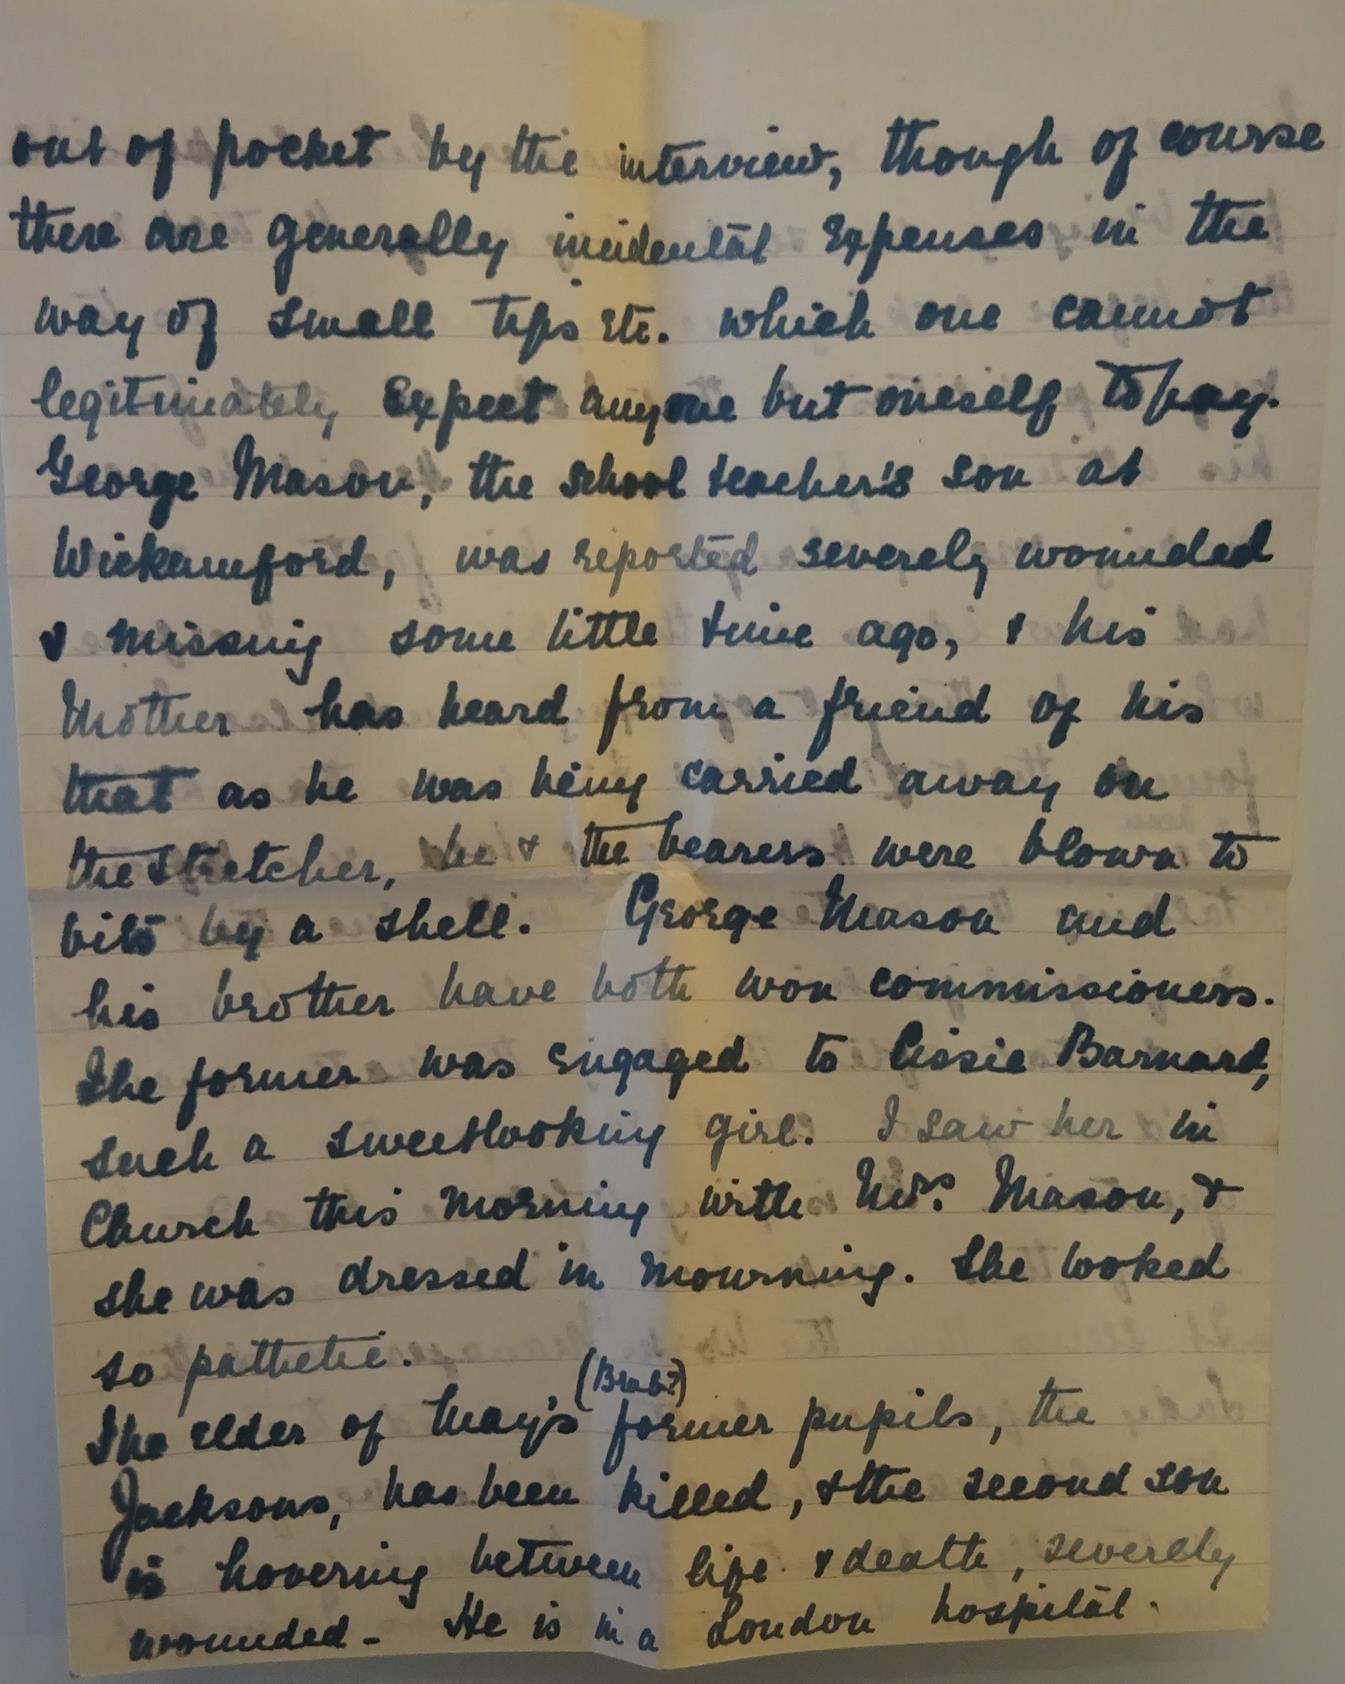 out of pocket by the interview, though of course
there are generally incidental expenses in the
way of small tips etc. which one cannot
legitimately expect anyone but oneself to pay.
George Mason, the school teacher's son at
Wickamford, was reported severely wounded
& missing some little time ago, & his
Mother has heard from a friend of his
that as he was being carried away on
the stretcher, he & the bearers were blown to
bits by a shell. George Mason and
his brother have both won commissioners.
The former was engaged to Cissie Barnard,
such a sweetlooking girl. I saw her in
Church this morning with Mrs. Mason, &
she was dressed in mourning. She looked
so pathetic.
(Brab?)
The elder of May's former pupils, the
Jacksons, has been killed, & the second son
is hovering between life & death, severely
wounded - He is in a London hospital.